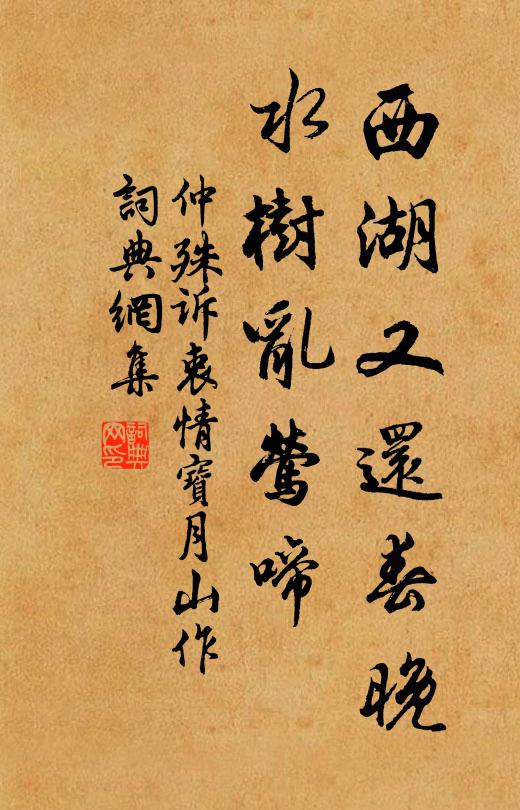 西湖又還春晚
水樹亂鶯啼
仲殊訴衷情寶月山作
詞典網集
詞典網印